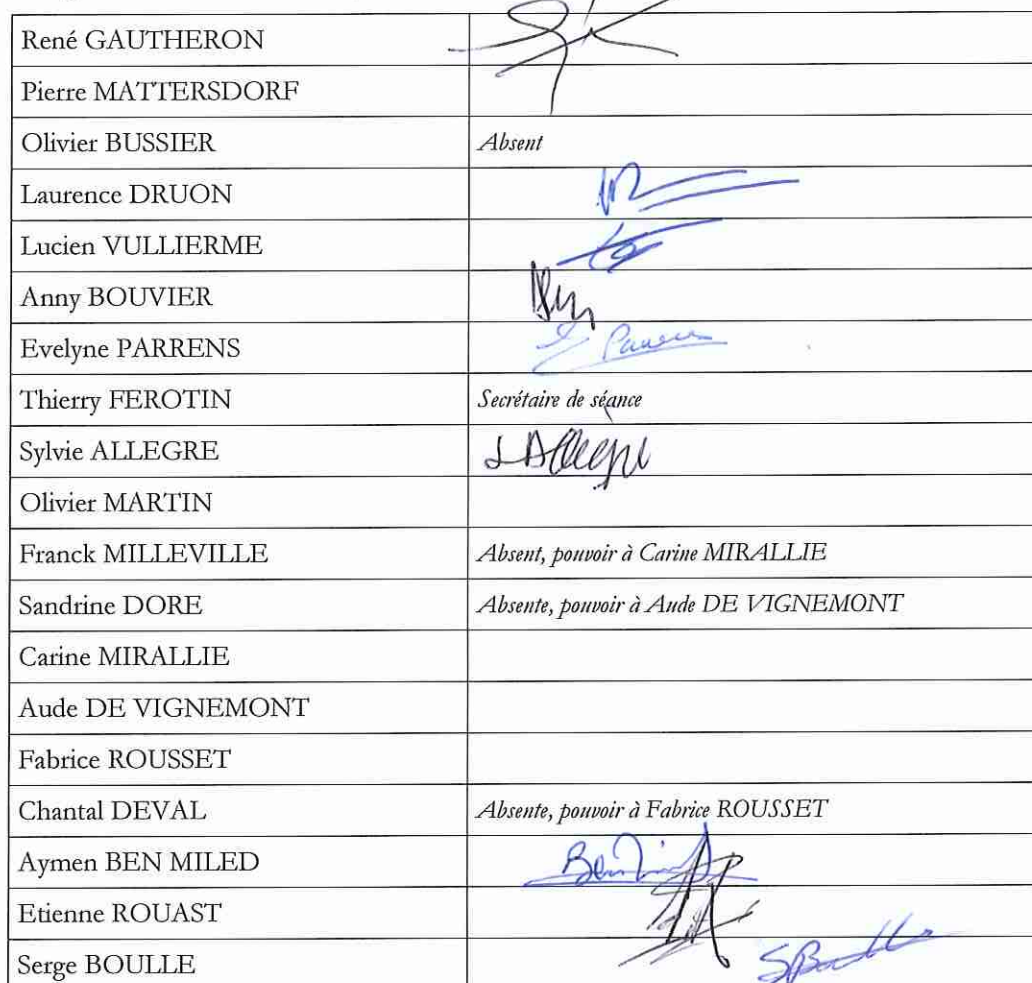 René GAUTHERON
Pierre MATTERSDORF
Olivier BUSSIER Absent
Laurence DRUON
Lucien VULLIERME
Anny BOUVIER
Evelyne PARRENS
Thierry FEROTIN Secrétaire de séance
Sylvie ALLEGRE
Olivier MARTIN
Franck MILLEVILLE Absent, pouvoir à Carine MIRALLIE
Sandrine DORE Absente, pouvoir à Aude DE VIGNEMONT
Carine MIRALLIE
Aude DE VIGNEMONT
Fabrice ROUSSET
Chantal DEVAL Absente, pouvoir à Fabrice ROUSSET
Aymen BEN MILED
Etienne ROUAST
Serge BOULLE